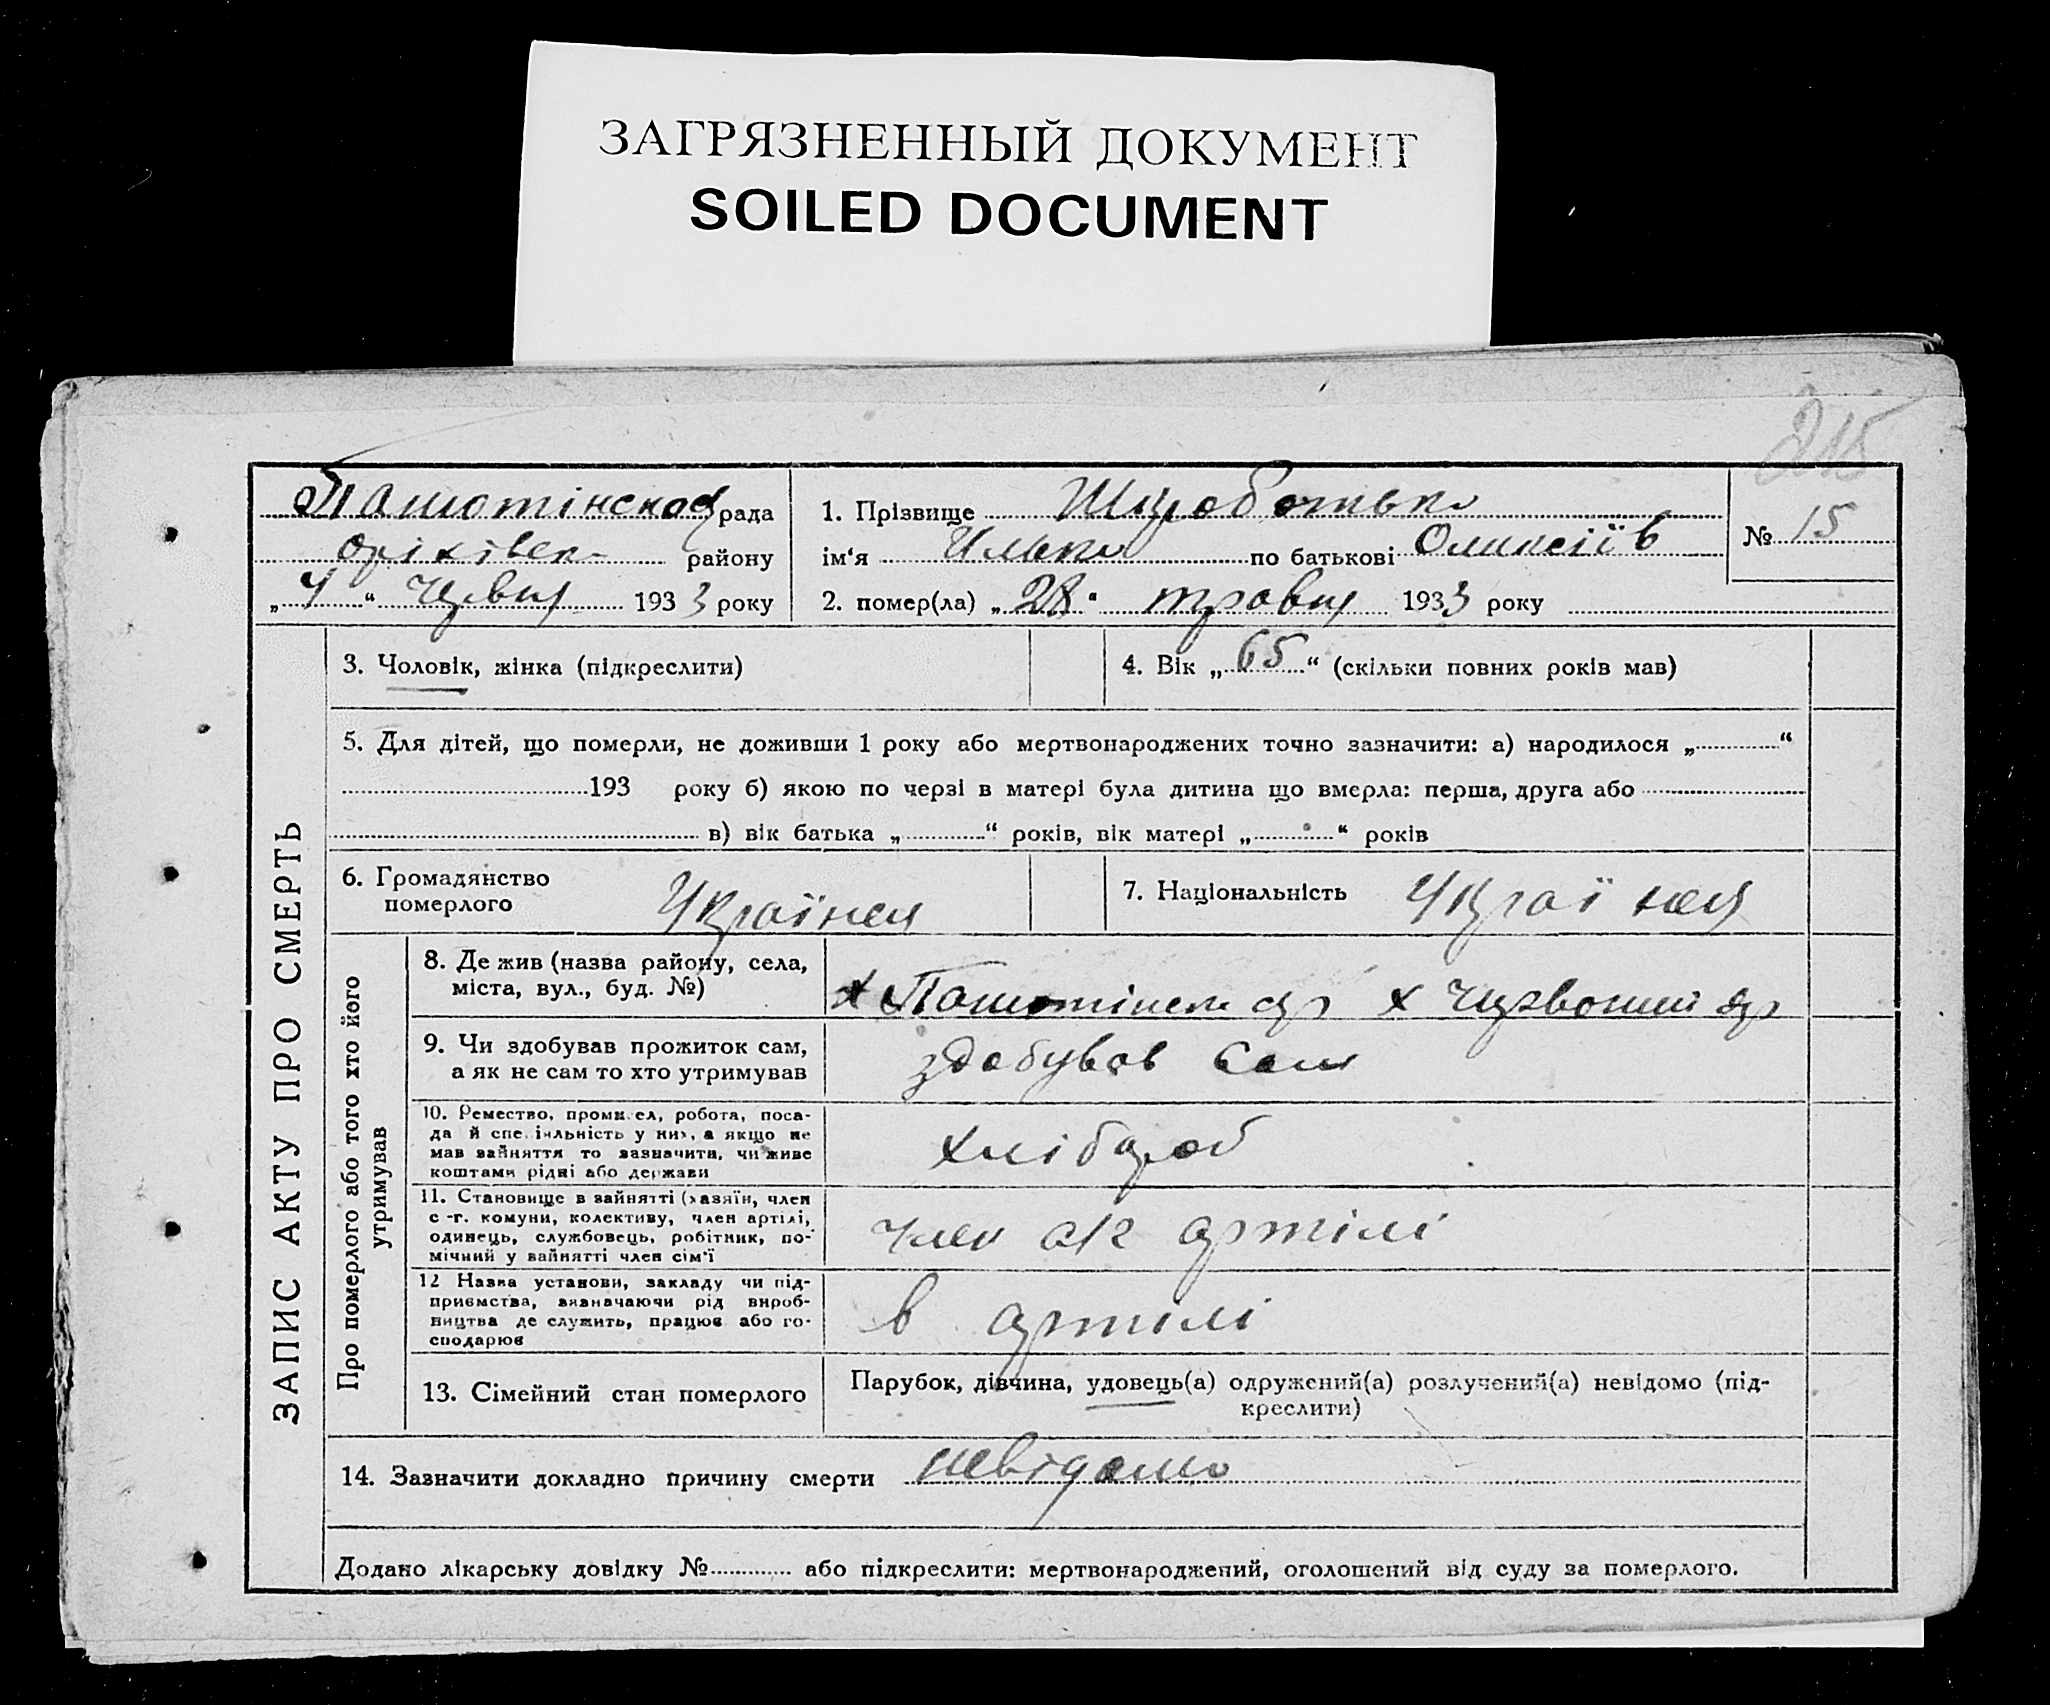 ЗАГРЯЗНЕННЫЙ ДОКУМЕНТ
SOILED DOCUMENT
215
рада
району
„ 4 “ червня 1933 року
1. Прізвище
ім‘я Илько по батькові Олексіїв
2. помер(ла) „ 28 “ травня 1933 року
№ 15
ЗАПИС АКТУ ПРО СМЕРТЬ
3. Чоловік, жінка (підкреслити)
4. Вік „ 65 “ (скільки повних років мав)
5. Для дітей, що померли, не доживши 1 року або мертвонароджених точно зазначити: а) народилося „ “
193 року б) якою по черзі в матері була дитина що вмерла: перша, друга або
в) вік батька „ “ років, вік матері „ “ років
6. Громадянство
померлого
Українец
7. Національність Українец
Про померлого або того хто його
утримував
8. Де жив (назва району, села,
міста, вул., буд. №)
9. Чи здобував прожиток сам,
а як не сам то хто утримував
здобував сам
10. Ремество, промисел, робота, поса-
да й спеціяльність у них, а якщо не
мав зайняття то зазначити, чи живе
коштами рідні або держави
хлібороб
11. Становище в зайнятті (хазяїн, член
с.-г. комуни, колективу, член артілі,
одинець, службовець, робітник, по-
мічний у зайнятті член сім‘ї
член с/г артілі
12 Назва установи, закладу чи під-
приємства, зазначаючи рід вироб-
ництва де служить, працює або го-
сподарює
в артілі
13. Сімейний стан померлого
Парубок, дівчина, удовець(а) одружений(а) розлучений(а) невідомо (під-
креслити)
14. Зазначити докладно причину смерти невідомо
Додано лікарську довідку № або підкреслити: мертвонароджений, оголошений від суду за померлого.